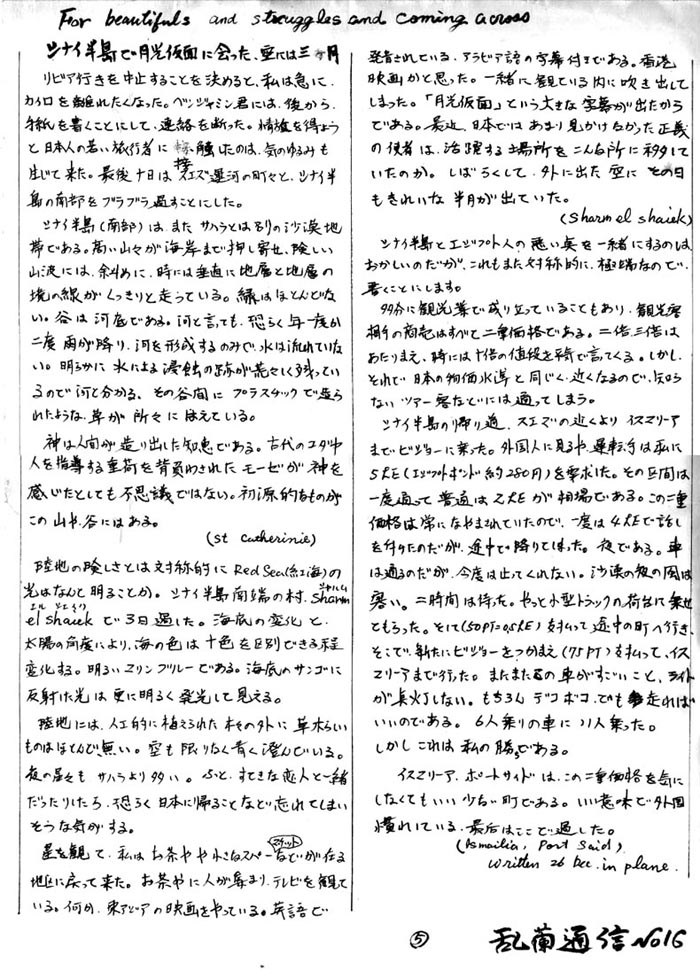 For beautifuls and struggles and coming across
シナイ半島で月光仮面に会った、空には三ヶ月
リビア行きを中止することを決めると、私は急に、
カイロを離れたくなった。ベンジャミン君には、後から
手紙を書くことにして、連絡を断った。情報を得よう
と日本人の若い旅行者に接触したのは、気のゆるみも
生じて来た。最後十日はスエズ運河の町々と、シナイ半
島の南部をブラブラ過すことにした。
シナイ半島(南部)は、またサハラとは別りの沙漠地
帯である。高い山々が海岸まで押し寄せ、険しい
山波には、斜めに、時には垂直に地層と地層の
境の線がくっきりと走っている。緑はほとんどな
い。谷は河底である。河と言っても、恐らく年一度か
二度雨が降り、河を形成するのみで、水は流れていな
い。明らかに水による浸蝕の跡が荒々しく残ってい
るので河と分かる。その谷間にプラスチックで造ら
れたような草が所々にはえている。
神は人間が造り出した知恵である。古代のユダヤ
人を指導する重荷を背負わされたモーゼが神を
感いたとしても不思議ではない。初源的なものが
この山や谷にはある。
(St Catherinie)
陸地の険しさとは対称的にRed Sea(紅海)の
光はなんと明ることか。シナイ半島南端の村、Sharm
シャルム
el shaiek で3日過した。海底の変化と、
エル シェイク
太陽の角度により、海の色は十色を区別できる程
変化する。明るいマリンブルーである。海底のサンゴに
反射た光は更に明るく発光して見える。
陸地には、人工的に植えられた木々の外に草木らしい
ものはほとんど無い。空も限りなく青く澄んでいる。
夜の星々もサハラより多い。ふと、すてきな恋人と一緒
だったりしたら、恐らく日本に帰ることなど忘れてしまい
そうな気がする。
星を観て、私はお茶やや小さなスペーなどが在る
マケット
地区に戻って来た。お茶やに人が集まり、テレビを観て
いる。何か、東アジアの映画をやっている。英語で
発音されている、アラビア語の字幕付きである。香港
映画かと思った。一緒に観ている内に吹き出して
しまった。「月光仮面」という大きな字幕が出たから
である。最近、日本ではあまり見かけなかった正義
の使者は、活躍する場所をこんな所に移して
いたのか。しばらくして、外に出た空にその日
もきれいな半月が出ていた。
(Sharm el shaiek)
シナイ半島とエジプト人の悪い奥を一緒にするのは
おかしいのだが、これもまた対称的に、極端なので、
書くことにします。
99分に観光業で成り立っていることもあり、観光客
相手の商売はすべて二重価格である。二倍、三倍は
あたりまえ、時には十倍の値段を平気で言ってくる。しかし、
それで日本の物価水準と同じく近くなるので、知ら
ないツアー客などには通ってしまう。
シナイ半島の帰り道、スエズの近くよりイスマリア
までビジョーに乗った。外国人に見るや、運転手は私に
5LE(エジプトポンド 約280円)を要求した。その区間は
一度通って普通は2LEが相場である。この二重
価格は常になやまされていたので、一度は4LEで話し
を付けたのだが、途中で降りてしまった。夜である。車
は通るのだが、今度は止ってくれない。沙漠の夜の風は
寒い。二時間は待った。やっと小型トラックの荷台に乗せ
ともらった。そして(50PT=0.5LE)支払って途中の町へ行き、
そこで、新たにビジョーをつかまえ(75PT)支払って、イス
マリアまで行った。またまたこの車がすごいこと、ライト
が点灯しない。もちろんデコボコ、でも走れば
いいのである。6人乗りの車に11人乗った。
しかしこれは私の勝ちである。
イスマリア、ポートサイドは、この二重価格を気に
しなくてもいい少ない町である。いい意味で外国
慣れている。最后はここで過した。
(Ismailia, Port Said)
written 26 Dec. in plane.
⑤
乱蘭通信 No16